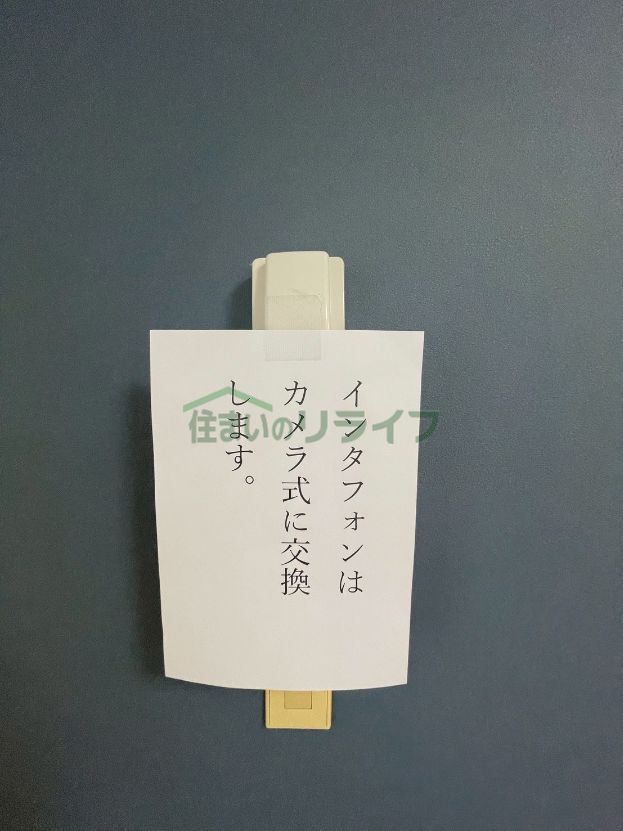 インタフォンは
カメラ式に交換
します。
住まいのリライフ